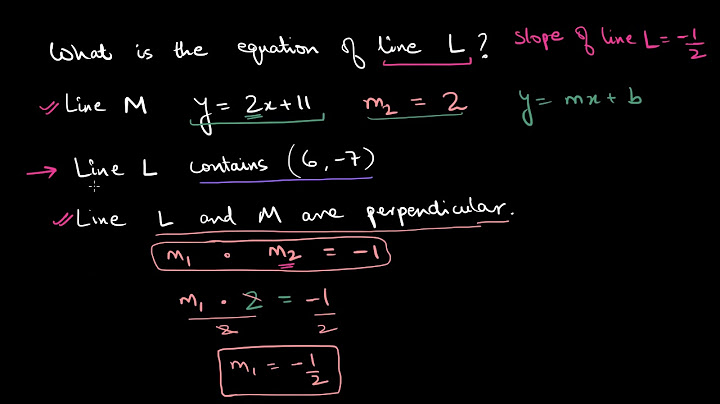 What is the equation of line L? slope of line L = -1/2
Line M y = 2x+11 m₂ = 2 y = mx + b
→ Line L contains (6, -7)
Line L and M are perpendicular.
m₁ · m₂ = -1
m₁ · 2 = -1
2 2
m₁ = -1/2